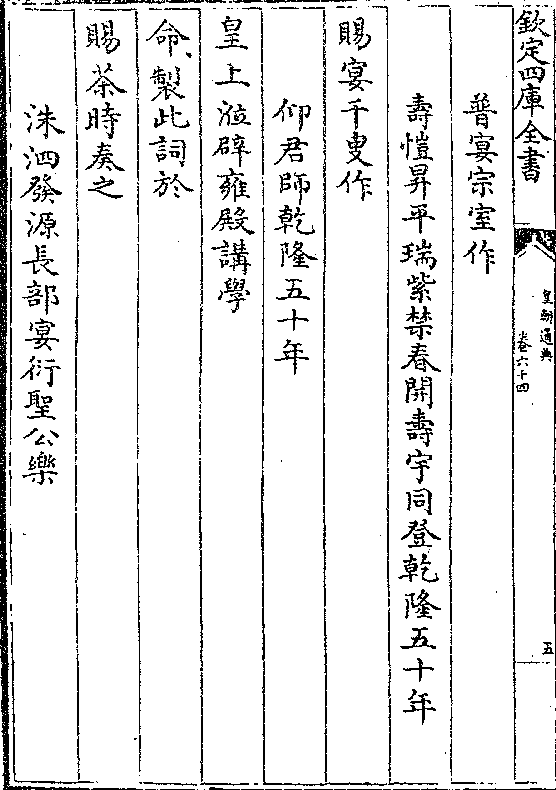 欽定四庫全書
皇朝通典
卷六十四
五
普宴宗室作
壽愷昇平瑞紫禁春開壽宇同登乾隆五十年
賜宴千叟作
仰君師乾隆五十年
皇上涖辟雍殿講學
命製此詞於
賜茶時奏之
洙泗發源長部宴衍聖公樂